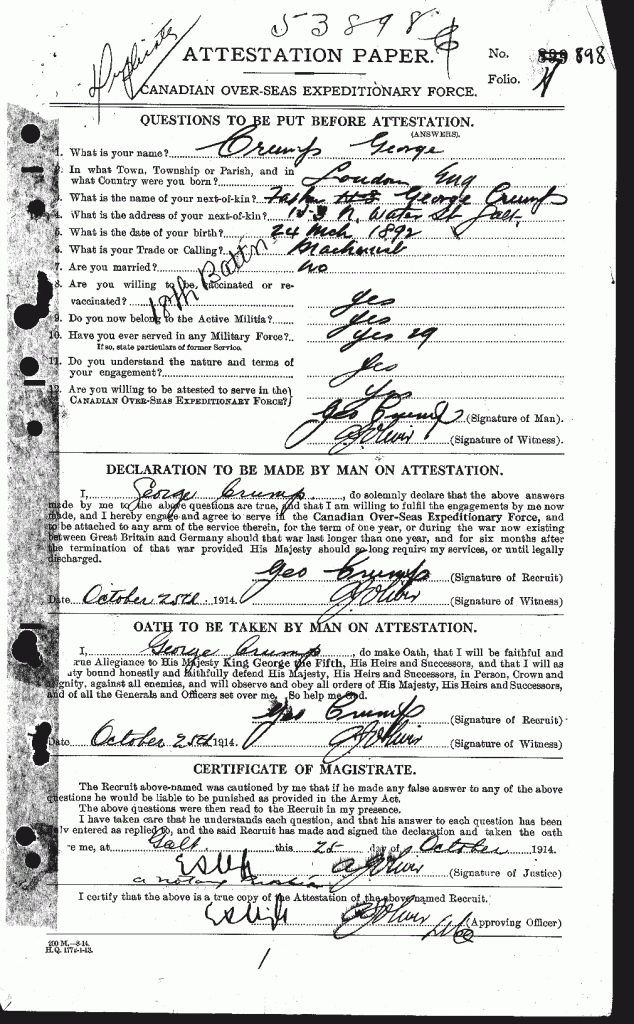 53898
Duplicate
ATTESTATION PAPER.
No. 898
Folio.
CANADIAN OVER-SEAS EXPEDITIONARY FORCE.
QUESTIONS TO BE PUT BEFORE ATTESTATION.
(ANSWERS).
1. What is your name? Crump George
2. In what Town, Township or Parish, and in
what Country were you born? London Eng
3. What is the name of your next-of-kin? Father George Crump
4. What is the address of your next-of-kin? N. Water St Galt.
5. What is the date of your birth? 24 Mch 1892
6. What is your Trade or Calling?
7. Are you married? no
18th Battn
8. Are you willing to be vaccinated or re-
vaccinated? Yes
9. Do you now belong to the Active Militia? Yes
10. Have you ever served in any Military Force? Yes 29
If so, state particulars of former Service.
11. Do you understand the nature and terms of
your engagement? Yes
12. Are you willing to be attested to serve in the
CANADIAN OVER-SEAS EXPEDITIONARY FORCE? Yes
Geo Crump (Signature of Man).
(Signature of Witness).
DECLARATION TO BE MADE BY MAN ON ATTESTATION.
I, George Crump, do solemnly declare that the above answers
made by me to the above questions are true, and that I am willing to fulfil the engagements by me now
made, and I hereby engage and agree to serve in the Canadian Over-Seas Expeditionary Force, and
to be attached to any arm of the service therein, for the term of one year, or during the war now existing
between Great Britain and Germany should that war last longer than one year, and for six months after
the termination of that war provided His Majesty should so long require my services, or until legally
discharged.
Geo Crump (Signature of Recruit)
Date October 25th 1914. (Signature of Witness)
OATH TO BE TAKEN BY MAN ON ATTESTATION.
I, George Crump, do make Oath, that I will be faithful and
rue Allegiance to His Majesty King George the Fifth, His Heirs and Successors, and that I will as
uty bound honestly and faithfully defend His Majesty, His Heirs and Successors, in Person, Crown and
ignity, against all enemies, and will observe and obey all orders of His Majesty, His Heirs and Successors,
and of all the Generals and Officers set over me. So help me God.
Geo Crump (Signature of Recruit)
Date October 25th 1914. (Signature of Witness)
CERTIFICATE OF MAGISTRATE.
The Recruit above-named was cautioned by me that if he made any false answer to any of the above
questions he would be liable to be punished as provided in the Army Act.
The above questions were then read to the Recruit in my presence.
I have taken care that he understands each question, and that his answer to each question has been
uly entered as replied to, and the said Recruit has made and signed the declaration and taken the oath
re me, at Galt this 25 day of October 1914.
(Signature of Justice)
a notary
I certify that the above is a true copy of the Attestation of the above-named Recruit.
(Approving Officer)
200 M.—8-14.
H.Q. 1772-1-13.